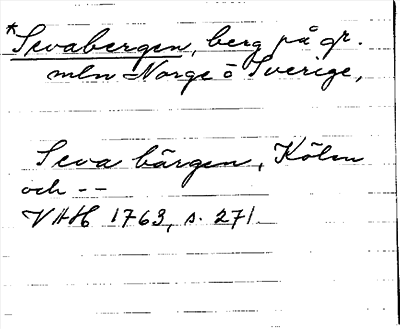 *Sevabergen, berg på gr.
mln Norge o Sverige,
Seva bärgen, Kölen
och - -
VAH 1763, s. 271.